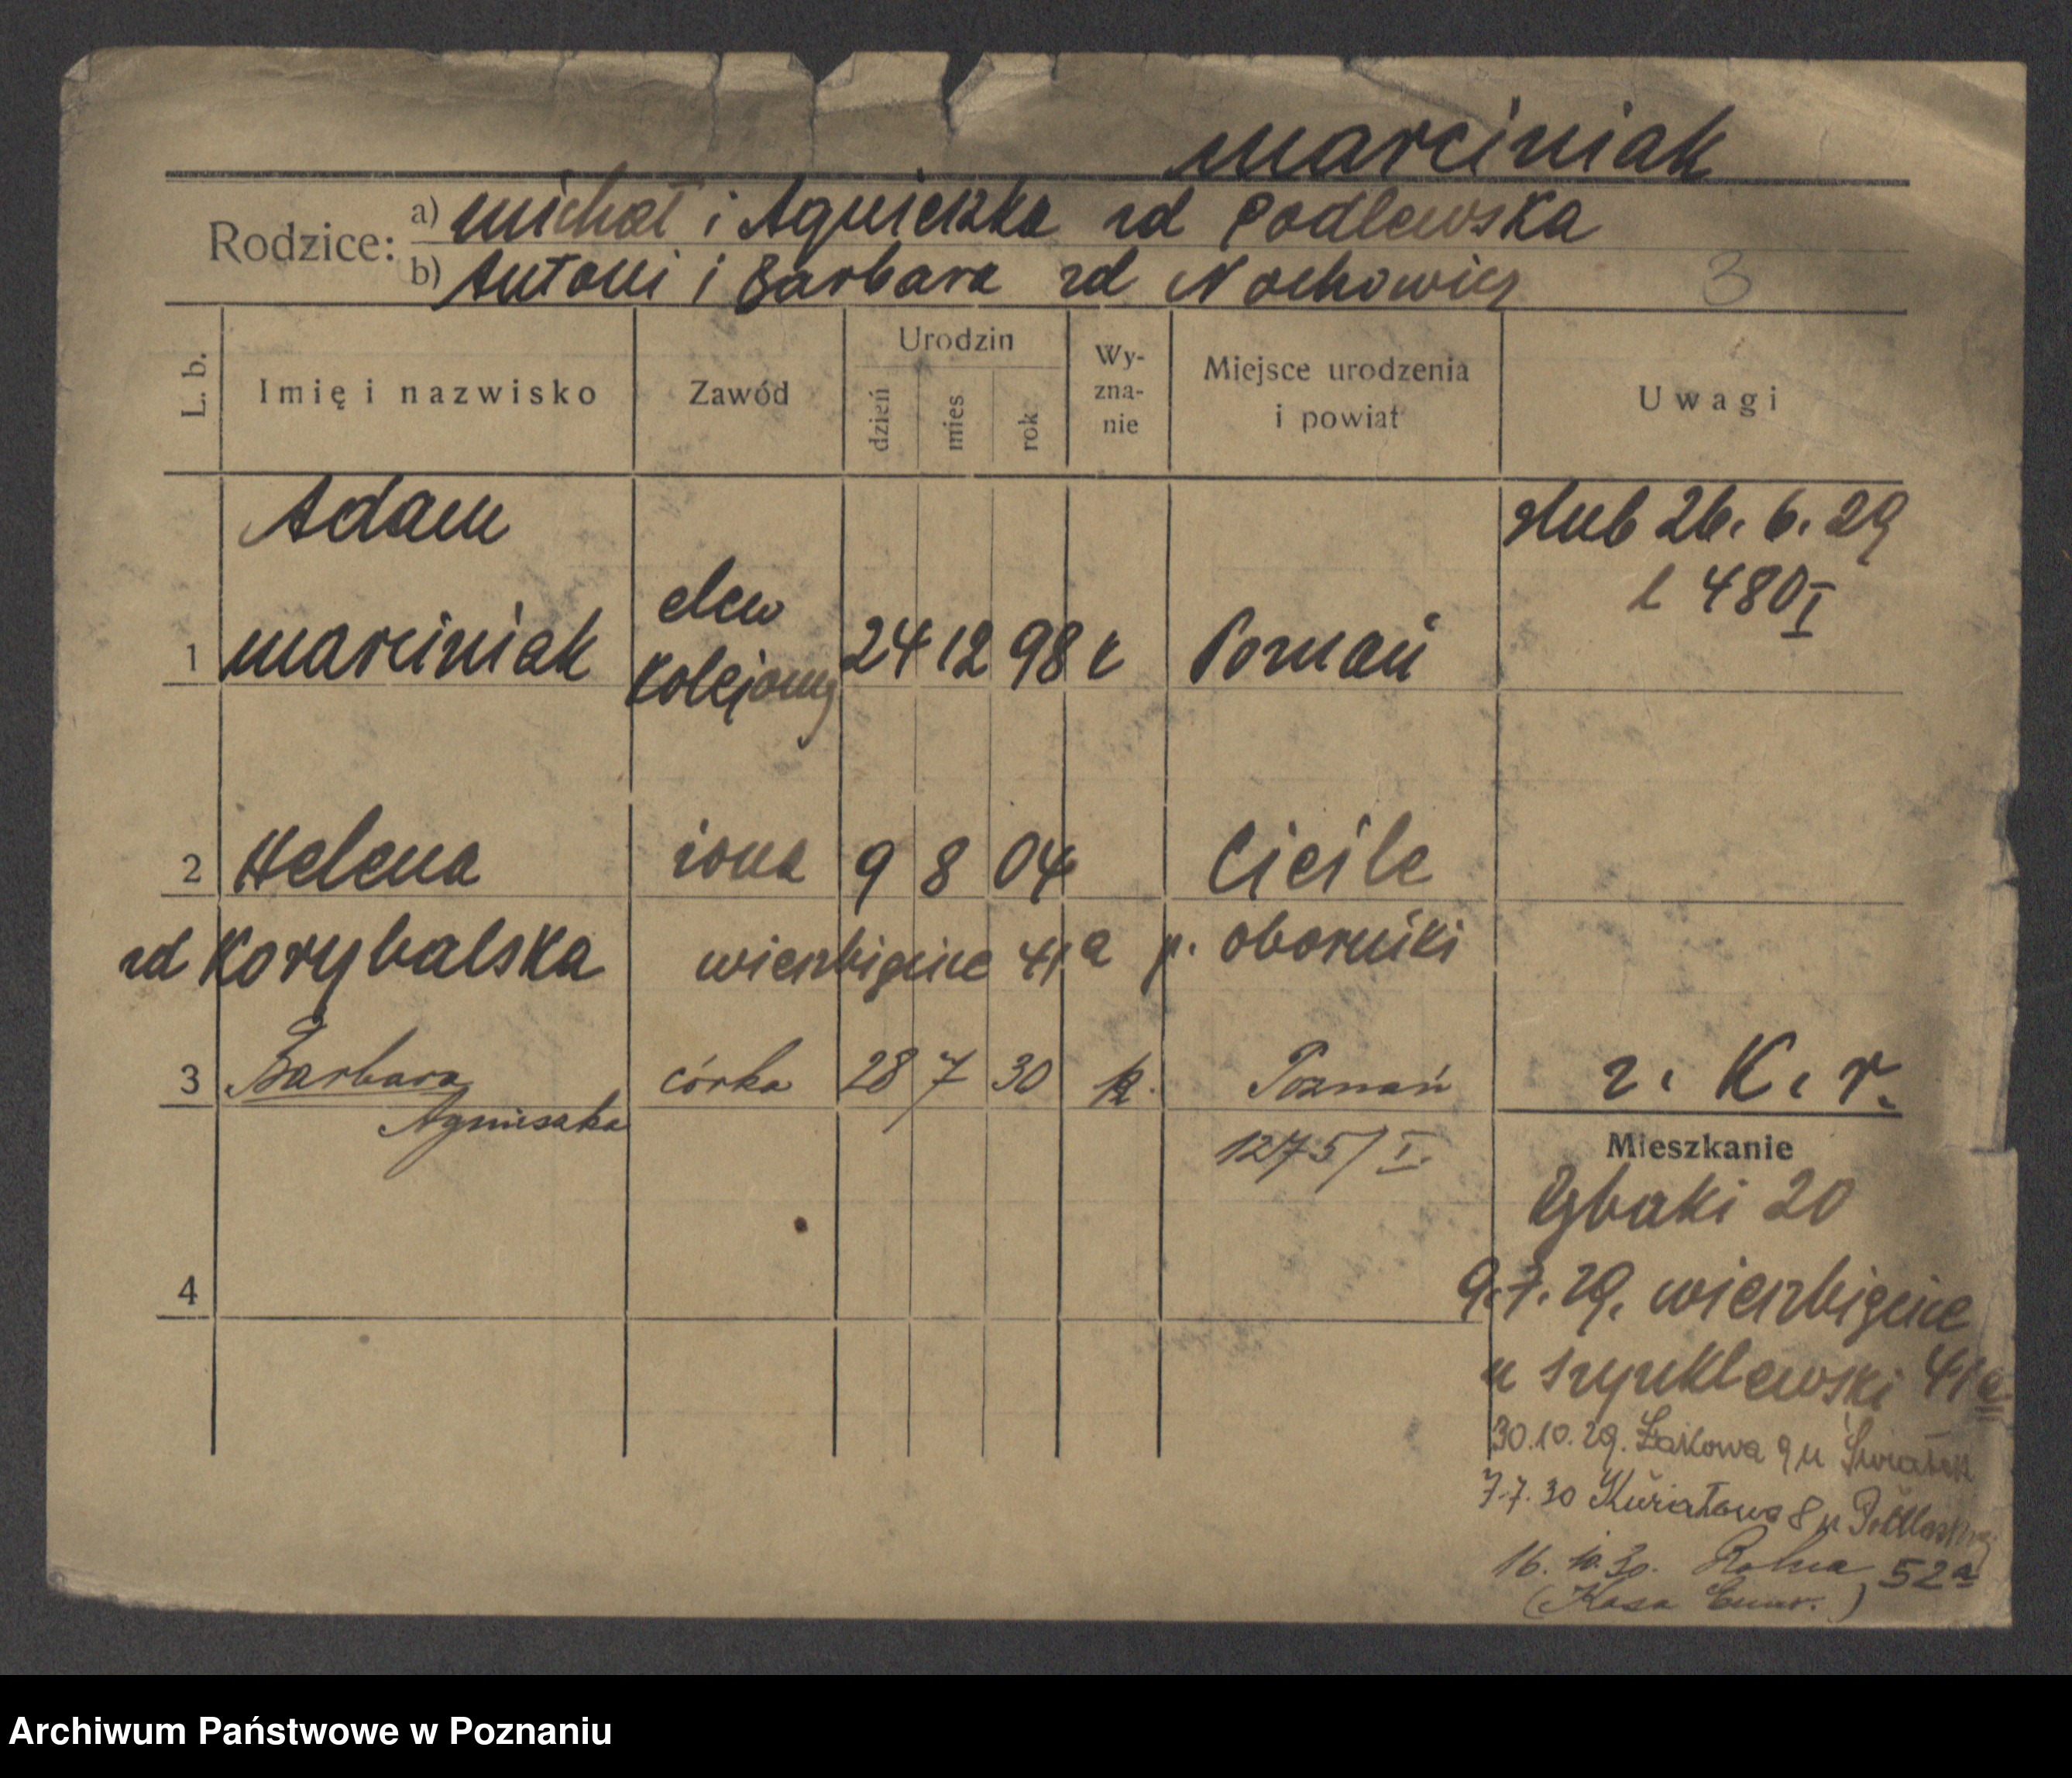 Marciniak
Rodzice: a) Michał i Agnieszka zd Podlewska
b) Antoni i Barbara zd Nochowicz
3
L. b. Imię i nazwisko Zawód Urodzin dzień mies rok Wy-zna-nie Miejsce urodzenia i powiat Uwagi
Adam ślub 26. 6. 29
elew l 480 I
1 Marciniak kolejowy 24 12 98 k Poznań
2 Helena żona 9 8 04 Cicile
zd Korybalska wierzbięcice 41a p. oborniki
3 Barbara córka 28 7 30 k. Poznań z. K. r.
Agnieszka 1275/I.
Mieszkanie
Rybaki 20
4
9.7.29. wierzbięcice
u Szynklewski 41a
30.10.29. Łąkowa 9 u Świątek
7.7.30 Kwiatowa 8 u
16. 10. 30. Rolna 52a
(Kasa )
Archiwum Państwowe w Poznaniu